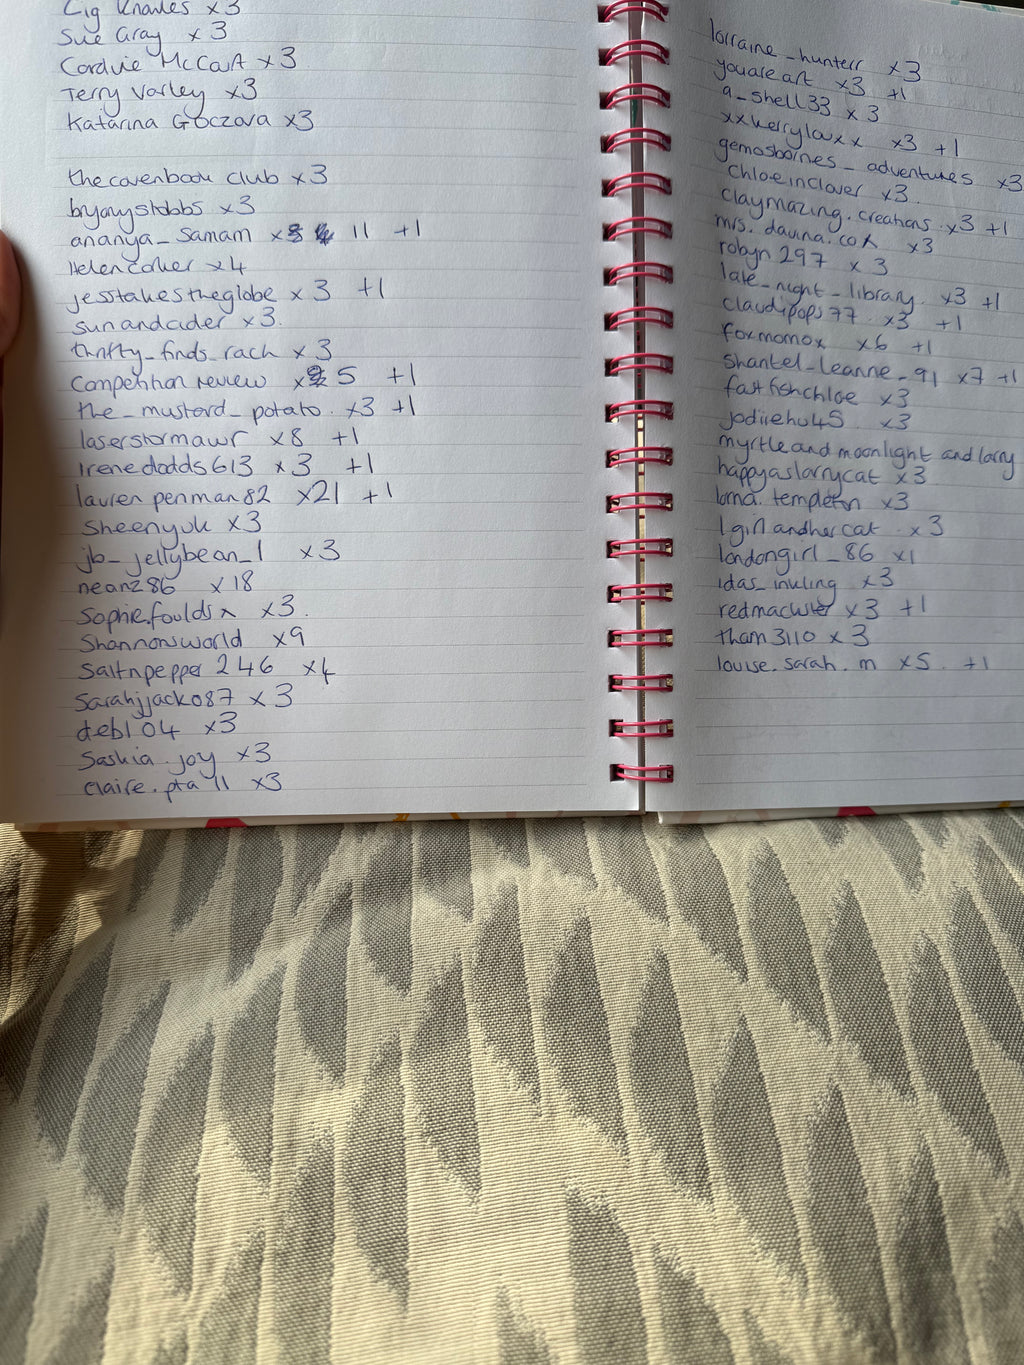 Knowles x3
Sue Gray x3
Cordvie McCart x3
Terry Varley x3
Katarina Goczova x3
thecovenbook club x3
bryonystobbs x3
ananya_samam x 11 +1
Helencorker x4
jesstakestheglobe x3 +1
sunandcider x3.
thrifty_finds_rach x3
Competition review x 5 +1
the_mustard_potato. x3 +1
laserstormawr x8 +1
Irenedodds613 x3 +1
lauren penman82 x21 +1
Sheenyuk x3
jb_jellybean_1 x3
neon286 x18
Sophie.foulds x x3.
Shannonsworld x9
Saltnpepper 246 x4
Sarahjjacko87 x3
deb104 x3
Saskia.joy x3
Claire.pta 11 x3
lorraine_hunterr x3
youare art x3 +1
a_shell33 x3
xxkerrylouxx x3 +1
gemosbornes_adventures x3
Chloeinclover x3.
claymazing.creations. x3 +1
mrs.dawna.cox x3
robyn297 x3
late_night_library. x3 +1
claudipops77. x3 +1
foxmomox x6 +1
Shantel_leanne_91 x7 +1
fastfishchloe x3
jodiiehu45. x3
myrtleand moonlight and larry
happyaslarrycat x3
lorna.templeton x3
1girlandhercat. x3
londongirl_86 x1
idas_inkling x3
x3 +1
tham3110 x3
louise.sarah.m x5. +1